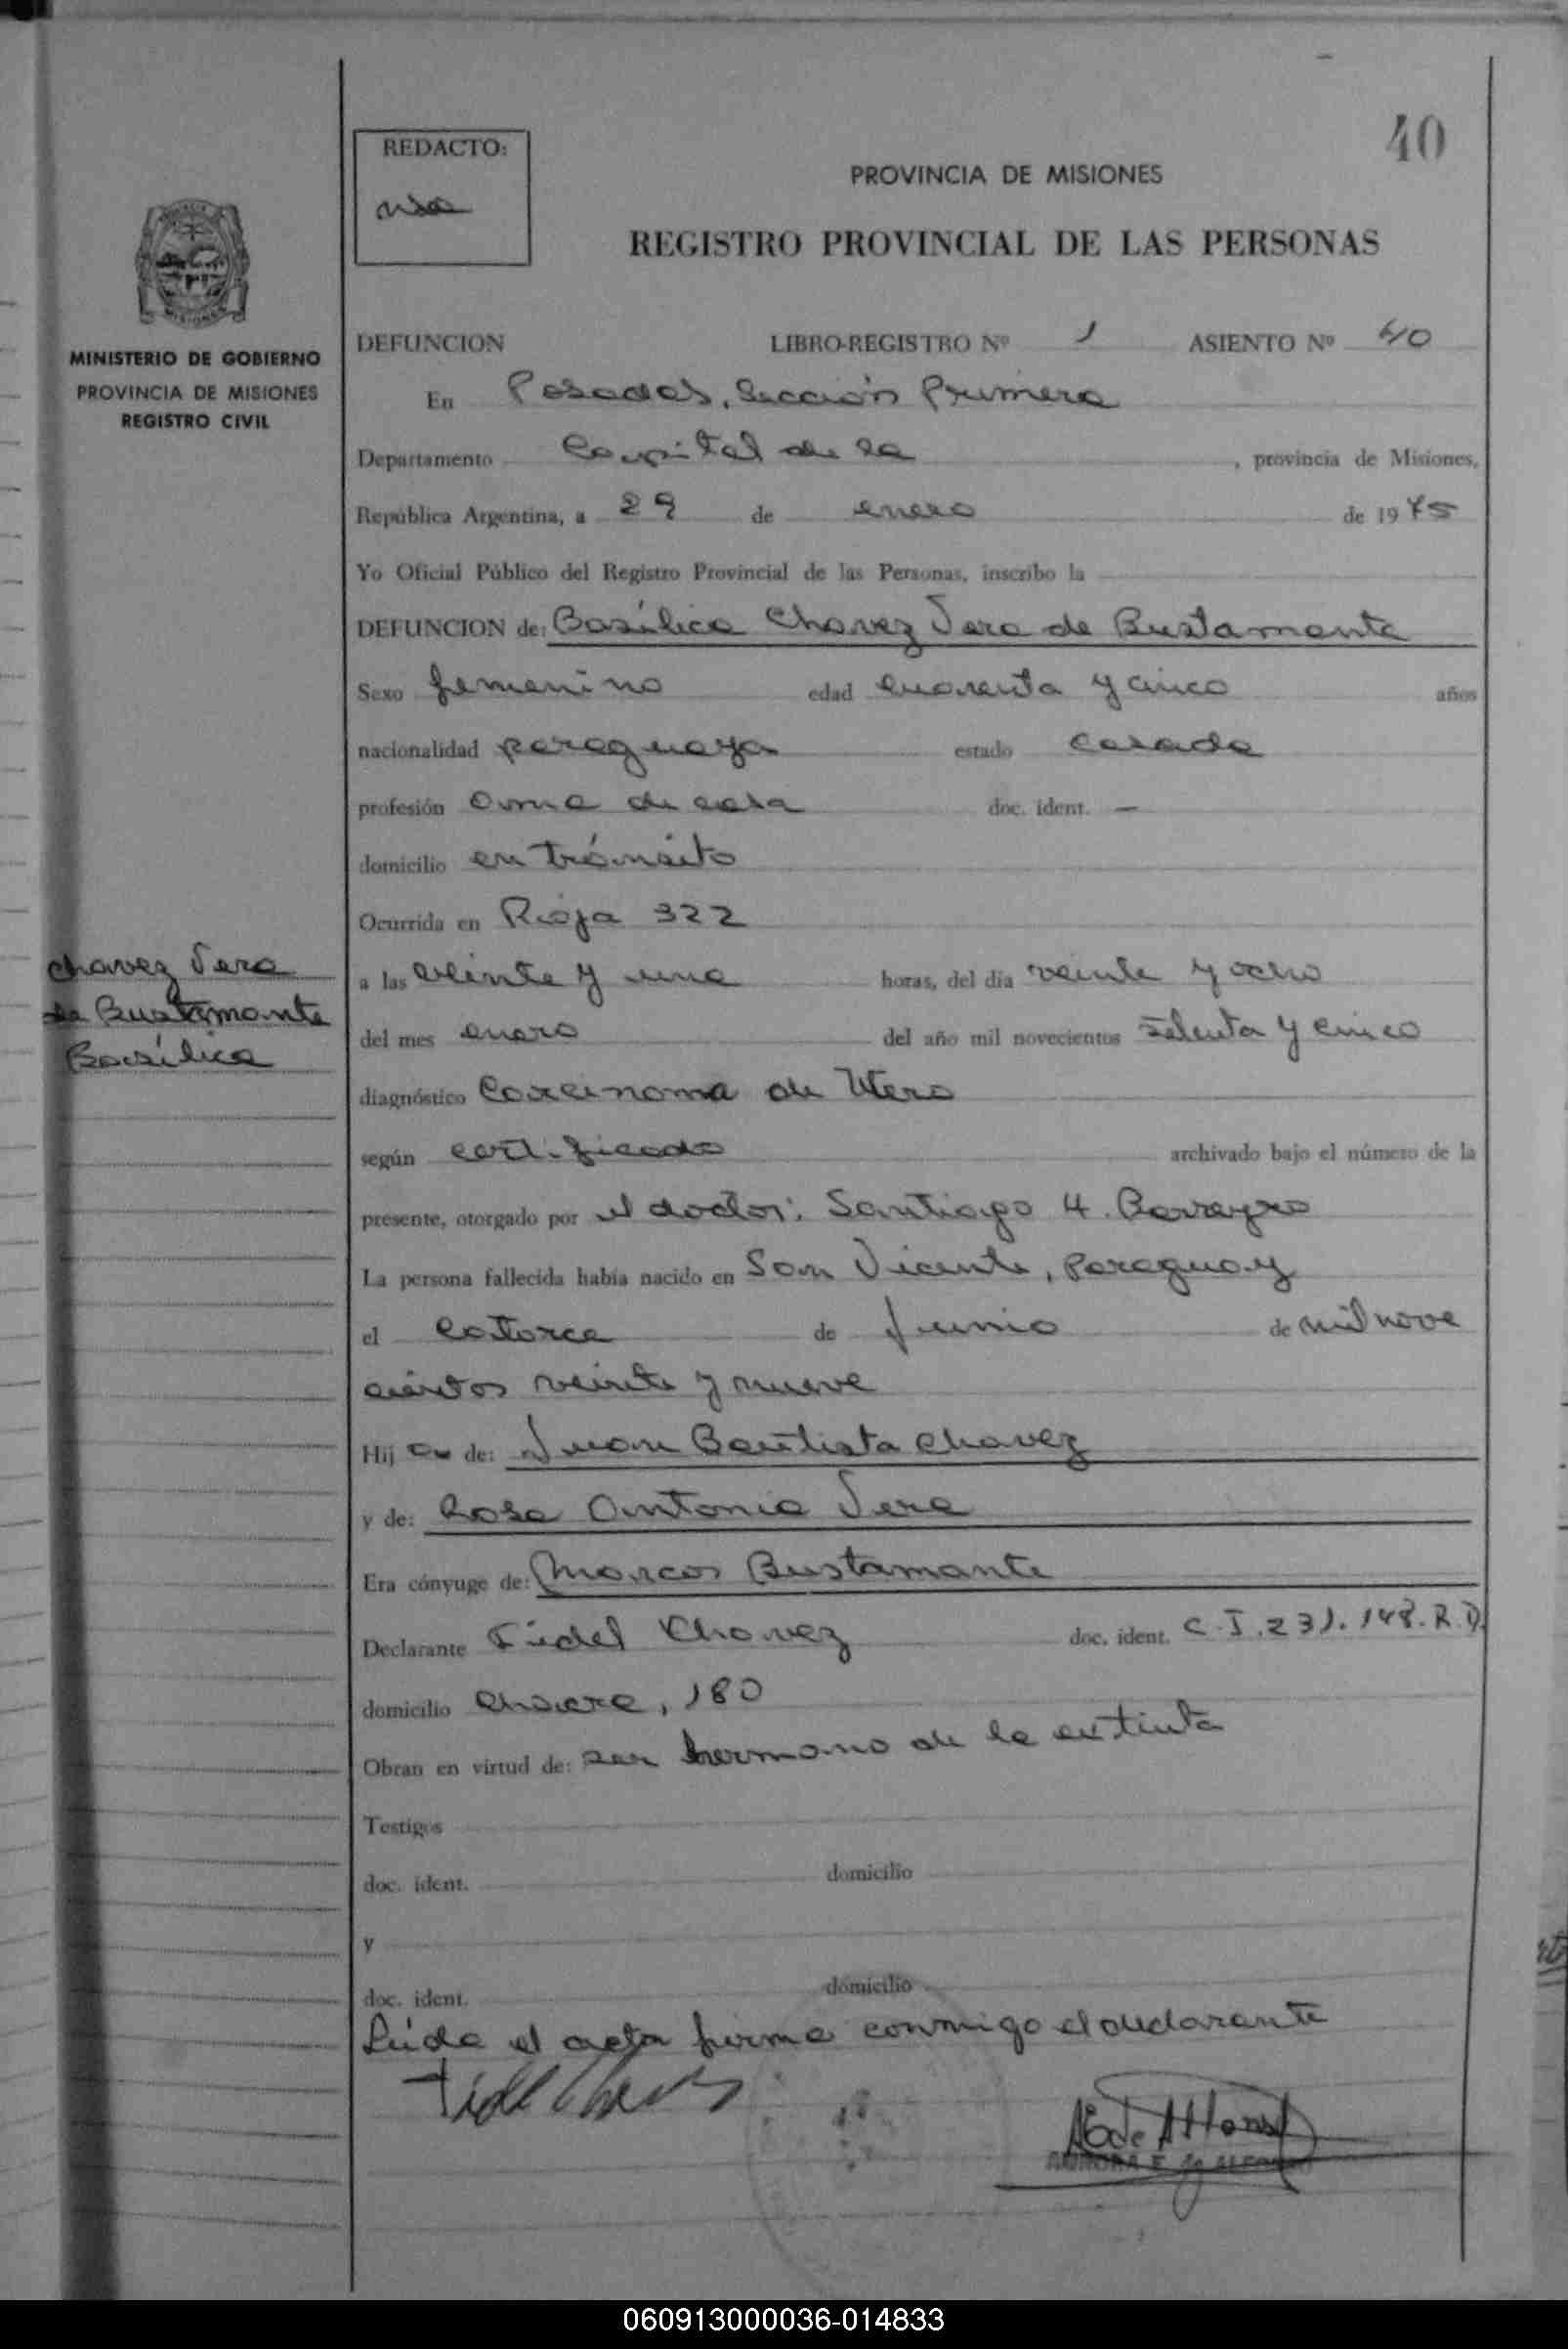 40
REDACTO:
PROVINCIA DE MISIONES
REGISTRO PROVINCIAL DE LAS PERSONAS
MINISTERIO DE GOBIERNO
PROVINCIA DE MISIONES
REGISTRO CIVIL
DEFUNCION LIBRO-REGISTRO Nº 1 ASIENTO Nº 40
En Posadas, Sección Primera
Departamento Capital de la , provincia de Misiones,
República Argentina, a 29 de enero de 1975
Yo Oficial Público del Registro Provincial de las Personas, inscribo la
DEFUNCION de: Basílica Chavez Vera de Bustamante
Sexo femenino edad cuarenta y cinco años
nacionalidad paraguaya estado casada
profesión ama de casa doc. ident. —
domicilio en tránsito
Ocurrida en Rioja 322
Chavez Vera
de Bustamante
Basílica
a las veinte y una horas, del día veinte y ocho
del mes enero del año mil novecientos setenta y cinco
diagnóstico Carcinoma de Utero
según certificado archivado bajo el número de la
presente, otorgado por el doctor: Santiago H. Barreyro
La persona fallecida había nacido en San Vicente, Paraguay
el catorce de Junio de mil nove
cientos veinte y nueve
Hij a de: Juan Bautista Chavez
y de: Rosa Antonia Vera
Era cónyuge de: Marcos Bustamante
Declarante Fidel Chavez doc. ident. C.I.231.148.R.P.
domicilio chacra, 180
Obran en virtud de: ser hermano de la extinta
Testigos
doc. ident. domicilio
y
doc. ident. domicilio
Leída el acta firma conmigo el declarante
Fidel Chavez
AURORA E. de ALFONSO
060913000036-014833